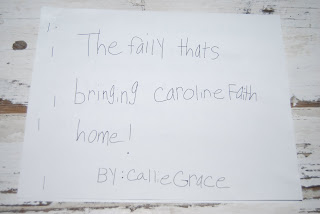 The faily thats
bringing caroline Faith
home!
BY: calleGrace